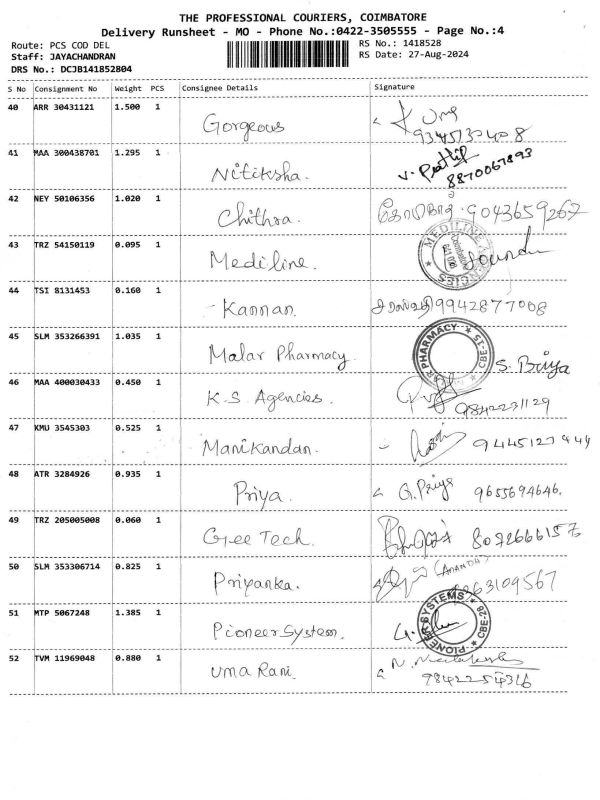 THE PROFESSIONAL COURIERS, COIMBATORE
Delivery Runsheet - MO - Phone No.:0422-3505555 - Page No.:4
Route: PCS COD DEL RS No.: 1418528
Staff: JAYACHANDRAN RS Date: 27-Aug-2024
DRS No.: DCJB141852804
S No Consignment No Weight PCS Consignee Details Signature
40 ARR 30431121 1.500 1 Gorgeous Uma
41 MAA 300438701 1.295 1 Nitiksha. V. Prathip
8870067893
42 NEY 50106356 1.020 1 Chithra. 9043659267
43 TRZ 54150119 0.095 1 Mediline. MEDILINE AGENCIES
44 TSI 8131453 0.160 1 Kannan. 9942877008
45 SLM 353266391 1.035 1 Malar Pharmacy. PHARMACY CBE-15 S. Briya
46 MAA 400030433 0.450 1 K.S. Agencies. 9842231129
47 KMU 3545303 0.525 1 Manikandan. 9445127444
48 ATR 3284926 0.935 1 Priya. G. Priya 9655694646.
49 TRZ 205005008 0.060 1 Gee Tech. 8072666157
50 SLM 353306714 0.825 1 Priyanka. (ANANDH)
63109567
51 MTP 5067248 1.385 1 Pioneer System. PIONEER SYSTEMS CBE-28
52 TVM 11969048 0.880 1 Uma Rani.
9842254316